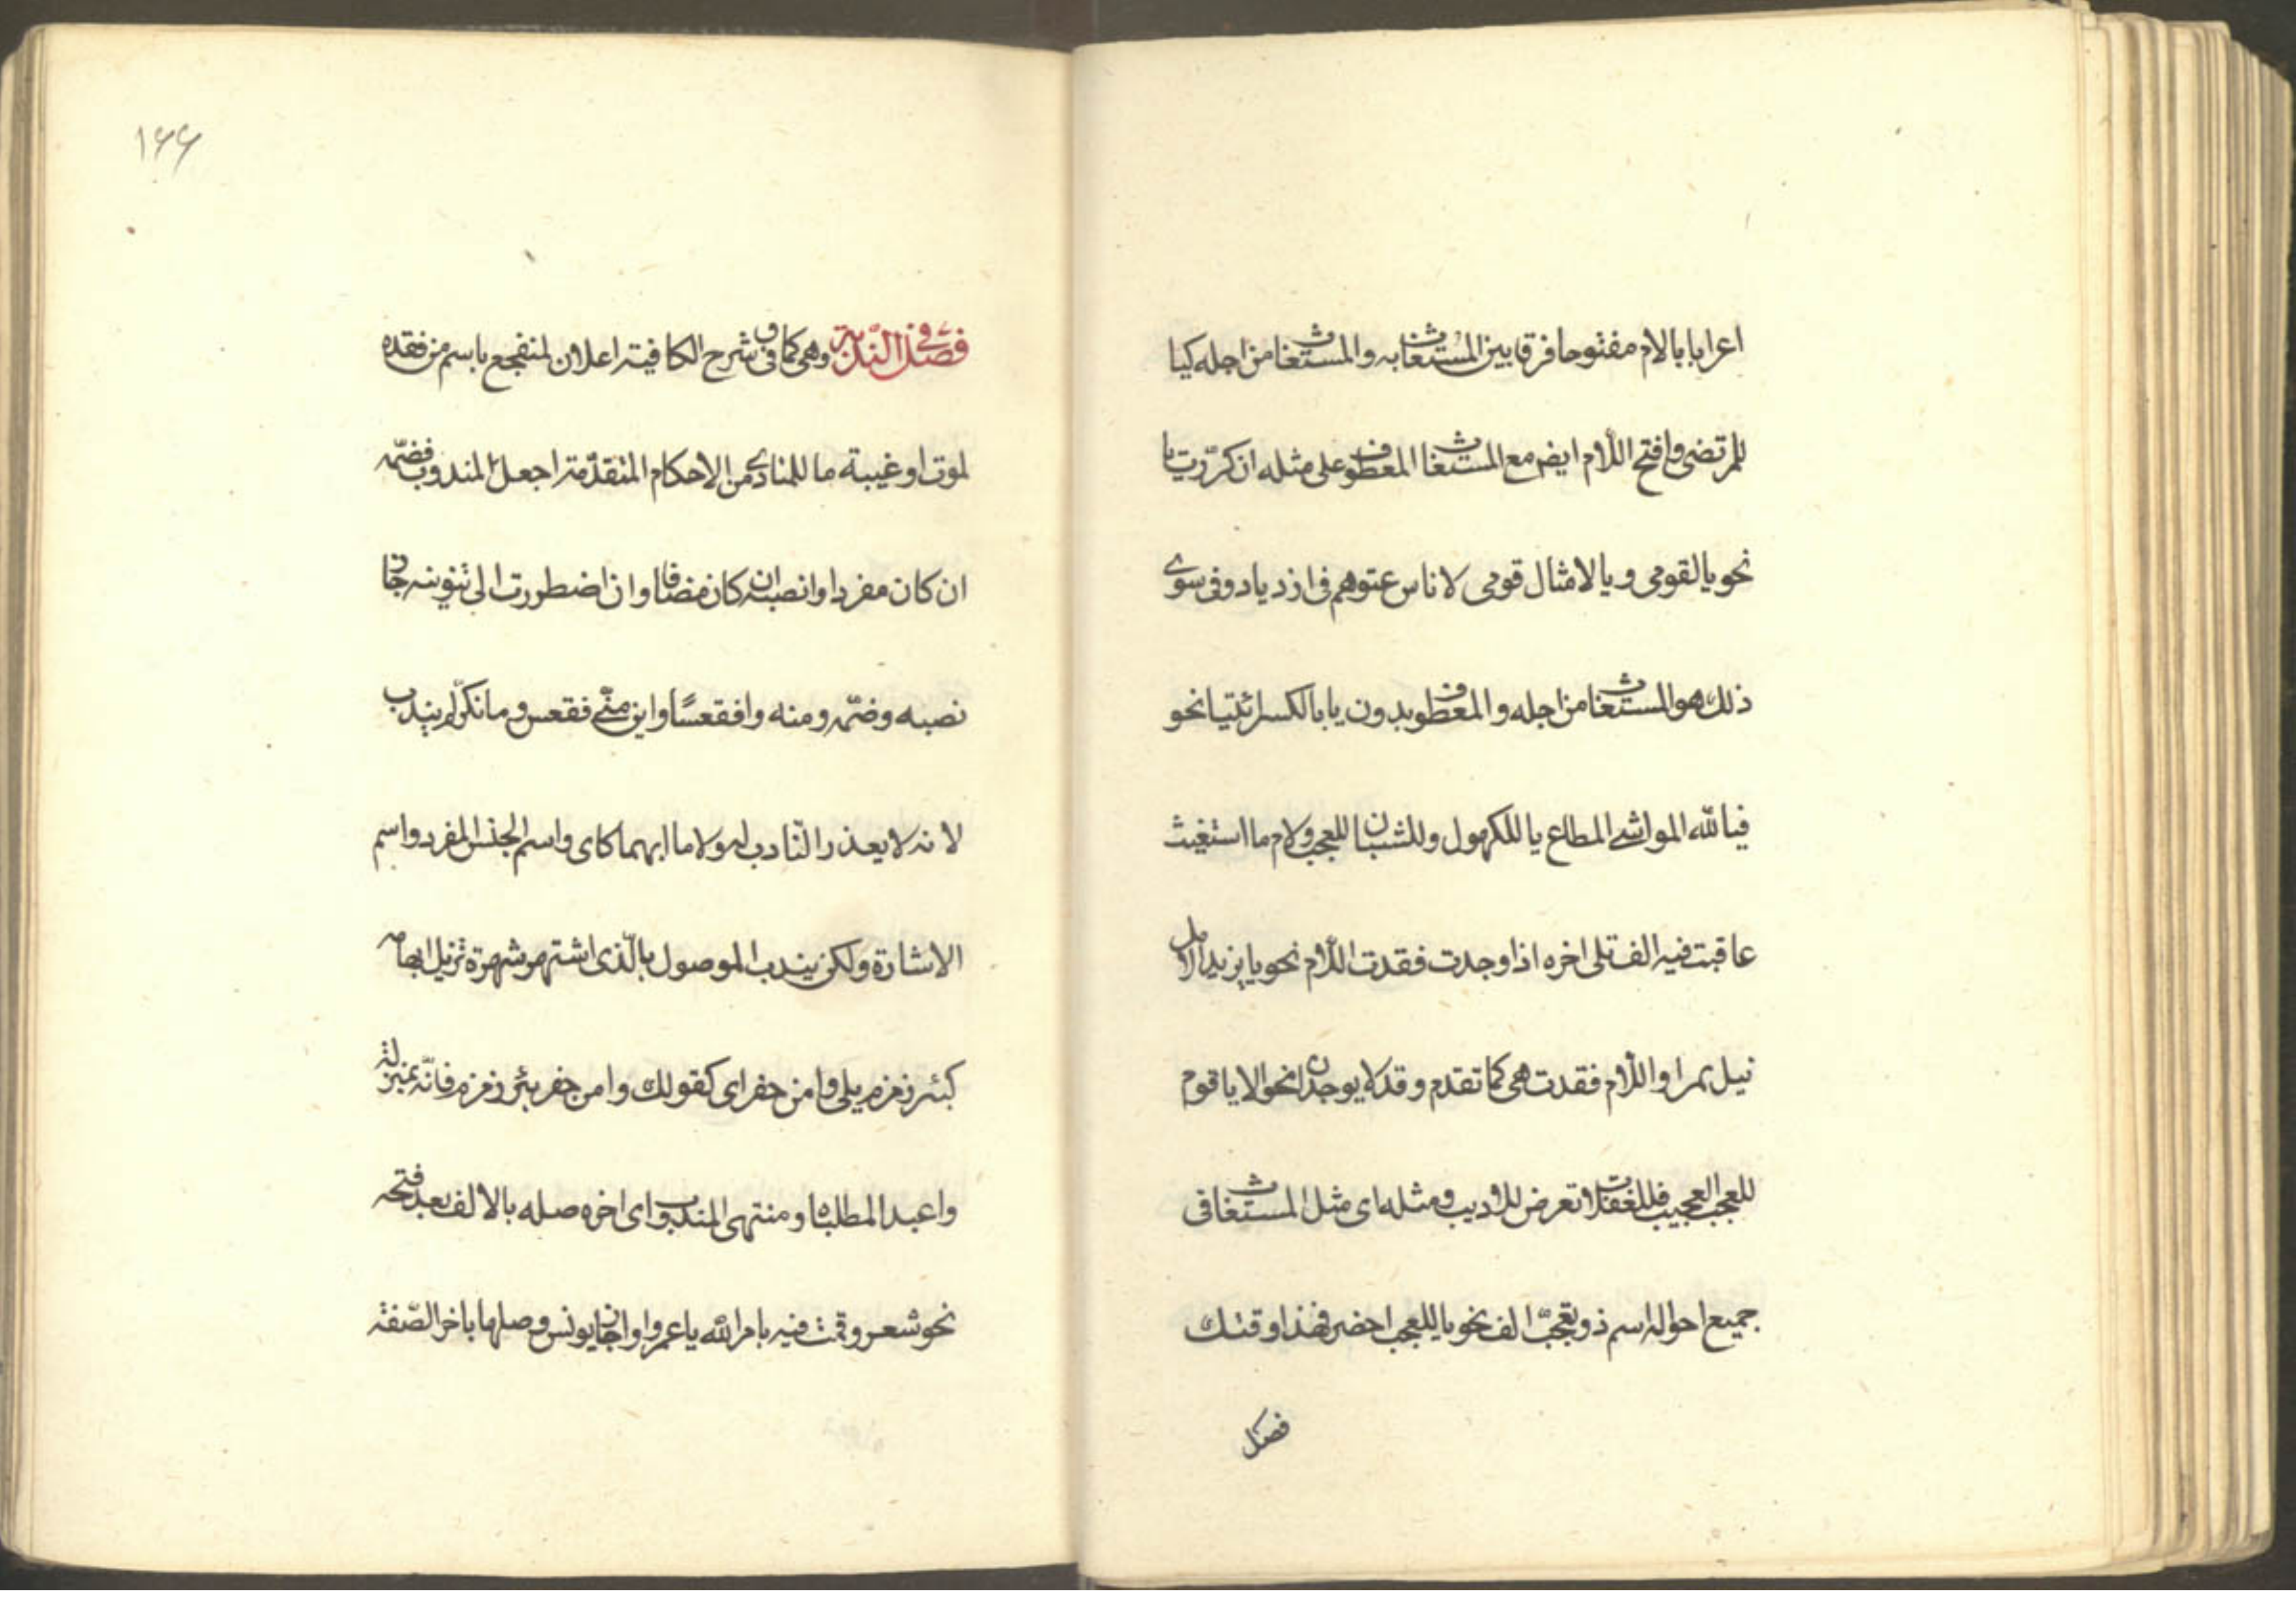 اعرابا بالام مفتوحا فرقا بين المستغاث به والمستغاث من اجله كيا
للمرتضى وافتح اللام ايض مع المستغاث المعطوف على مثله ان كررت يا
نحو يا لقومي و يا لامثال قومي لاناس عتوهم في ازدياد وفي سوى
ذلك هو المستغاث من اجله و المعطوف بدون يا بالكسر ائتيا نحو
فيا لله المواشي المطاع يا للكهول وللشبان للعجب ولام ما استغيث
عاقبت فيه الف تلى اخره اذا وجدت فقدت اللام نحو يا يزيدا لامل
نيل بمر او اللام فقدت هي كما تقدم و قد لا يوجدان نحو الا يا قوم
للعجب العجيب فللغفلات تعرض للاديب ومثله اى مثل المستغاث في
جميع احواله اسم ذو تعجب الف نحو يا للعجب احضر فهذا وقتك
فصل
١٦٦
فصل في الندبة وهى كما في شرح الكافية اعلان لمتفجع باسم من فقده
لموت او غيبة ما للمنادى من الاحكام المتقدمة اجعل لمندوب فضمه
ان كان مفردا وانصبه ان كان مضافا وان اضطررت الى تنوينه جاز
نصبه وضمه ومنه وافقعسًا واين منّى فقعس وما نكّر لم يندب
لانه لا يعذر النّادب له ولا ما ابهما كاى واسم الجنس المفرد واسم
الاشارة ولكن يندب الموصول بالّذى اشتهر شهرة تزيل ابهامه
كبئر زمزم يلى وا من حفر اى كقولك وا من حفر بئر زمزم فانّه بمنزلة
واعبد المطلباه ومنتهى المندوب اى اخره صله بالالف بعد فتحه
نحو شعر وقمت فيه بامر الله يا عمرا واجاز يونس وصلها باخر الصّفة